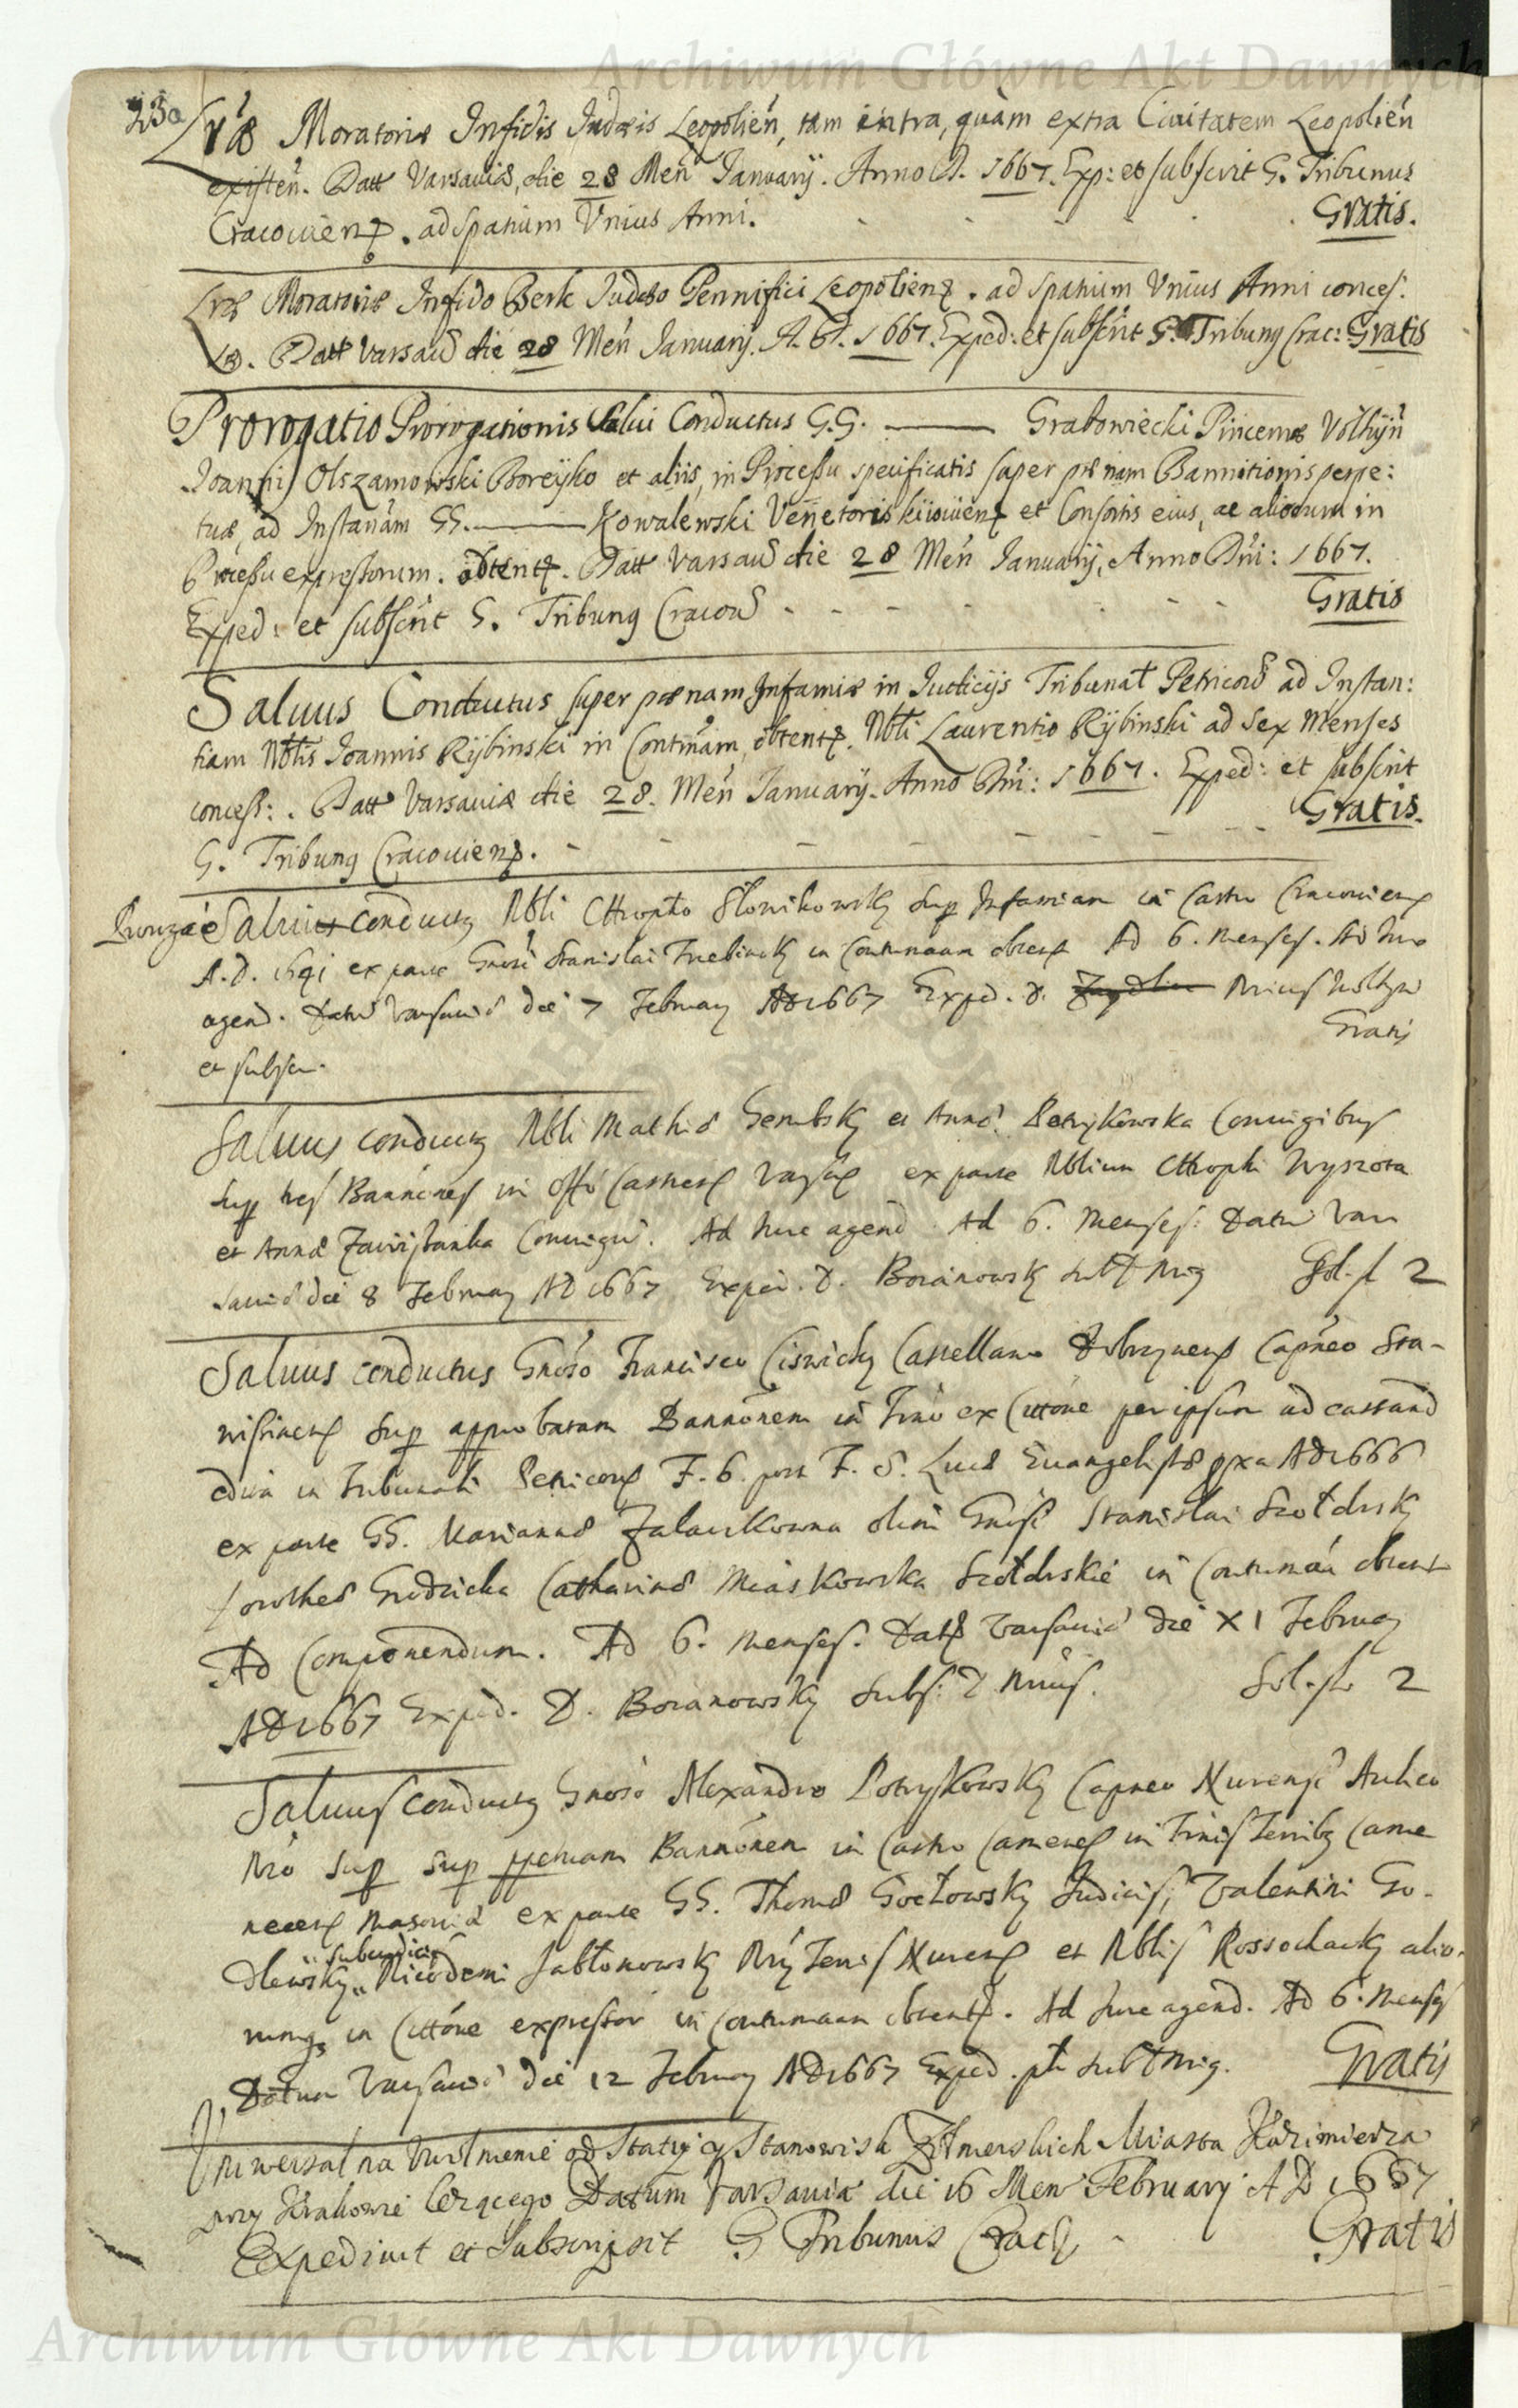 Archiwum Główne Akt Dawnych
230
Lrae Moratoriae Infidis Judaeis Leopolień, tam intra, quàm extra Ciuitatem Leopolień
existeń. Datt Varsauiae, die 28 Meń Januarij. Anno D. 1667. Exp: et subscrit G. Tribunus
Cracouien. ad spatium Vnius Anni. Gratis.
Lrae Moratoriae Infido Berk Judaeo Pennifici Leopolien. ad spatium Vnius Anni conces:
Datt Varsau die 28 Meń Januarij. A. D. 1667. Exped: et subscrit G. Tribung Crac: Gratis
Prorogatio Prorogationis Salui Conductus G.G. —— Grabowiecki Pincernae Volhyń
Joanni Olszamowski Boreyko et aliis, in Processu specificatis super paenam Bannitionis perpe:
tuae, ad Instanām GG. —— Kowalewski Venetoris kiiouien et Consortis eius, ac aliorum in
Processu expressorum. obtent. Datt Varsau die 28 Meń Januarij, Anno Dni: 1667.
Exped: et subscrit G. Tribung Cracou - - - - Gratis
Saluus Conductus super paenam Infamiae in Iudicijs Tribunat Petricou ad Instan:
tiam Nbtis Joannis Rybinski in Contmām, obtent. Nbti Laurentio Rybinski ad Sex Menses
concess: . Datt Varsauiae die 28. Meń Januarij. Anno Dni: 1667. Exped: et subscrit
G. Tribung Cracouien. - - - - Gratis.
Salui conductg Nbli Chropto Słonikowsky sup Infamiam in Castro Cracouien
A. D. 1641 ex parte Gnosi Stanislai Trebinsky in Contumaam obtent Ad 6. Menses. Ad Jure
agend. Datu Varsauiae die 7 February AD 1667 Exped. D.
et subscr. Gratis
Saluus conductg Nbli Mathiae Gembsky et Annae Petrykowska Coniugibus
sup tres Bannones in Offo Castren ex parte Nblium Chropti Wyszota
et Annae Coniugu. Ad Jure agend. Ad 6. Menses: Datu Var
sauiae die 8 February AD 1667 Exped. D. Boianowsky Sol. fl 2
Saluus conductus Gnoso Francisco Ciswicky Castellano Dobrzynen Capneo Sta-
nisinen sup approbatam Bannonem in Trno ex Cittone per ipsum ad cassand
edita in Tribunali Petricou F. 6. post F. S. Lucae Euangelistae pxa AD 1666
ex parte GG. Mariannae Zalaskowna olim Gnosi Stanislai Szołdrsky
Catharinae Miaskowska Szołdrskie in Contumām obtent
Ad Componendum. Ad 6. Menses. Datt Varsauiae die XI February
AD 1667 Exped. D. Boianowsky Subs: Sol. fl. 2
Saluus conductg Gnoso Alexandro Potrykowsky Capneo Nurensi Aulico
Nro sup sup ppetuam Bannonem in Castro Camenen in
Masouiae ex parte GG. Thomae Goctowsky Judicis, Valentini Go-
dlewsky „subiudicis„ Nicodemi Jabłonowsky Nuren et Nblis Rossochacky alio-
rumq in Cittone expressor in Contumaam obtent. Ad Jure agend. Ad 6. Menses
Datum Varsauiae die 12 February AD 1667 Exped. Gratis
Vniwersał na Vwolnienie od Stacyi y Stanowisk Zołnierskich Miasta Kazimierza
przy Krakowie leżącego Datum Varsauiae die 16 Men February A D 1667
Expediuit et Subscripsit G Tribunus Crac Gratis
Archiwum Główne Akt Dawnych